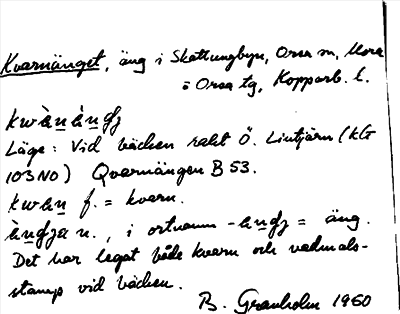 Kvarnänget, äng i Skattungbyn, Orsa sn, Mora
o Orsa tg, Kopparb. l.
kwàṉàṉdʒ
Läge: Vid bäcken rakt Ö. Lintjärn (KG
103 NO) Qvarnängen B 53.
kwàṉ f. = kvarn.
àṉdʒa n., i ortnamn -aṉdʒ = äng.
Det har legat både kvarn och vadmals-
stamp vid bäcken.
B. Granholm 1960